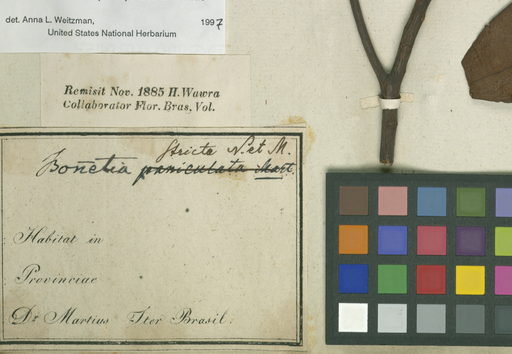 det. Anna L. Weitzman, 1997
United States National Herbarium
Remisit Nov. 1885 H. Wawra
Collaborator Flor. Bras. Vol.
stricta N. et M.
Bonetia paniculata Mart.
Habitat in
Provinciae
Dr Martius Iter Brasil: